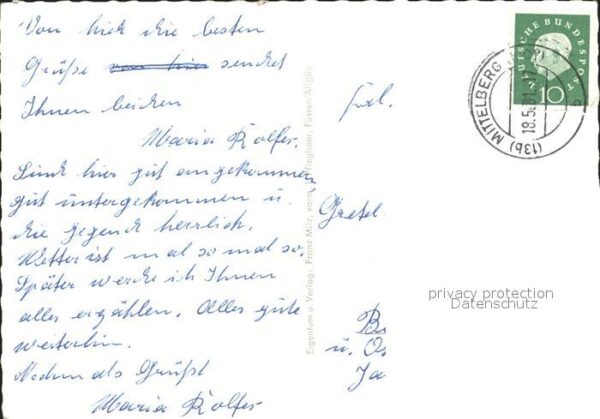 Von hier die besten
Grüße von hier sendet
Ihnen beiden
Maria Rolfes.
Sind hier gut angekommen,
gut untergekommen u.
die Gegend herrlich.
Wetter ist mal so mal so.
Später werde ich Ihnen
alles erzählen. Alles gute
weiterhin.
Nochmals Grüßt
Maria Rolfes
Eigentum u. Verlag: Franz Milz, vorm. Füssen-Allgäu
Frl.
Gretel
u. Os
Ja
DEUTSCHE BUNDESPOST
10
(13b) MITTELBERG
18.5.61
privacy protection
Datenschutz